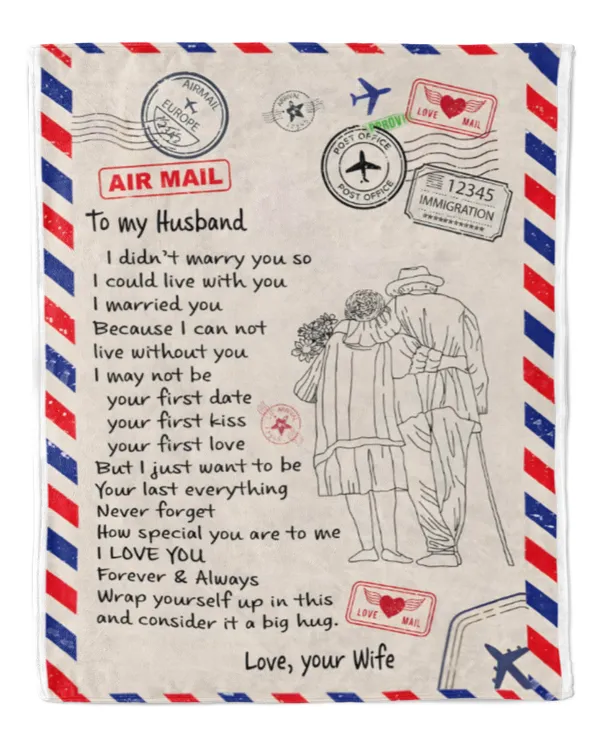 AIRMAIL
EUROPE
12345
ARRIVAL
LOVE MAIL
POST OFFICE
POST OFFICE
12345
IMMIGRATION
AIR MAIL
To my Husband
I didn't marry you so
I could live with you
I married you
Because I can not
live without you
I may not be
your first date
your first kiss
your first love
But I just want to be
Your last everything
Never forget
How special you are to me
I LOVE YOU
Forever & Always
Wrap yourself up in this
and consider it a big hug.
LOVE MAIL
Love, your Wife